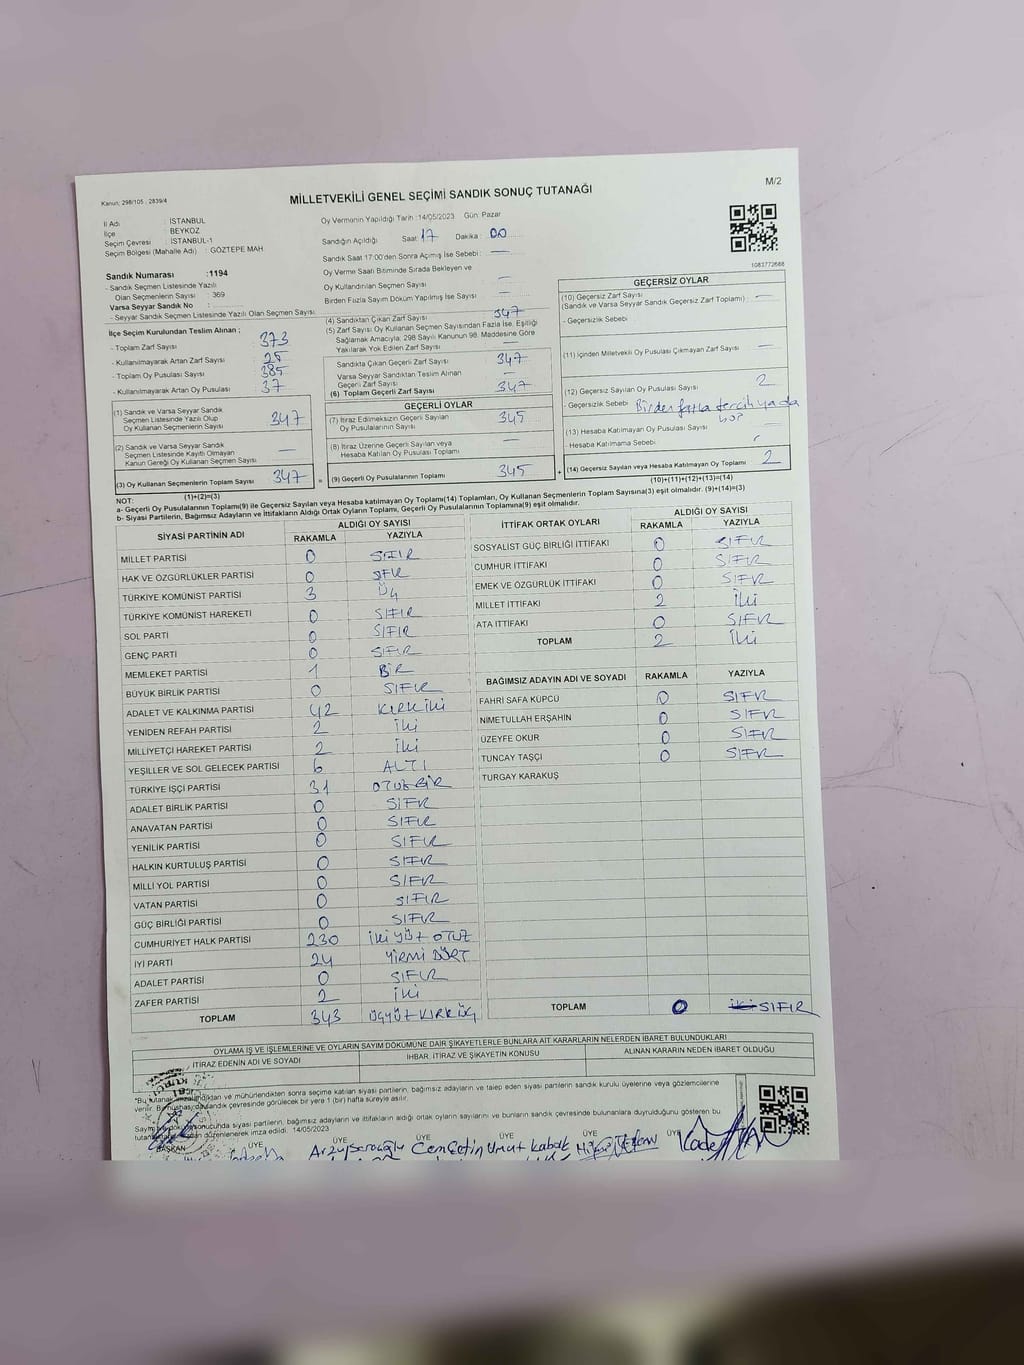 Kanun: 298/105 , 2839/4
MİLLETVEKİLİ GENEL SEÇİMİ SANDIK SONUÇ TUTANAĞI
M/2
İl Adı : İSTANBUL
İlçe : BEYKOZ
Seçim Çevresi : İSTANBUL-1
Seçim Bölgesi (Mahalle Adı) : GÖZTEPE MAH
Sandık Numarası :1194
- Sandık Seçmen Listesinde Yazılı
Olan Seçmenlerin Sayısı : 369
Varsa Seyyar Sandık No :
- Seyyar Sandık Seçmen Listesinde Yazılı Olan Seçmen Sayısı:
Oy Vermenin Yapıldığı Tarih :14/05/2023 Gün: Pazar
Sandığın Açıldığı Saat: 17 Dakika : 00
Sandık Saat 17:00'den Sonra Açılmış İse Sebebi : —
Oy Verme Saati Bitiminde Sırada Bekleyen ve
Oy Kullandırılan Seçmen Sayısı : —
Birden Fazla Sayım Döküm Yapılmış İse Sayısı : —
1083772688
İlçe Seçim Kurulundan Teslim Alınan ;
- Toplam Zarf Sayısı : 373
- Kullanılmayarak Artan Zarf Sayısı : 25
- Toplam Oy Pusulası Sayısı : 385
- Kullanılmayarak Artan Oy Pusulası : 37
(1) Sandık ve Varsa Seyyar Sandık
Seçmen Listesinde Yazılı Olup
Oy Kullanan Seçmenlerin Sayısı : 347
(2) Sandık ve Varsa Seyyar Sandık
Seçmen Listesinde Kayıtlı Olmayan
Kanun Gereği Oy Kullanan Seçmen Sayısı : —
(3) Oy Kullanan Seçmenlerin Toplam Sayısı : 347
(1)+(2)=(3)
(4) Sandıktan Çıkan Zarf Sayısı : 347
(5) Zarf Sayısı Oy Kullanan Seçmen Sayısından Fazla İse, Eşitliği
Sağlamak Amacıyla; 298 Sayılı Kanunun 98. Maddesine Göre
Yakılarak Yok Edilen Zarf Sayısı : —
Sandıkta Çıkan Geçerli Zarf Sayısı : 347
Varsa Seyyar Sandıktan Teslim Alınan
Geçerli Zarf Sayısı : —
(6) Toplam Geçerli Zarf Sayısı : 347
GEÇERLİ OYLAR
(7) İtiraz Edilmeksizin Geçerli Sayılan
Oy Pusulalarının Sayısı : 345
(8) İtiraz Üzerine Geçerli Sayılan veya
Hesaba Katılan Oy Pusulası Toplamı : —
(9) Geçerli Oy Pusulalarının Toplamı : 345
GEÇERSİZ OYLAR
(10) Geçersiz Zarf Sayısı
(Sandık ve Varsa Seyyar Sandık Geçersiz Zarf Toplamı) : —
- Geçersizlik Sebebi :
(11) İçinden Milletvekili Oy Pusulası Çıkmayan Zarf Sayısı : —
(12) Geçersiz Sayılan Oy Pusulası Sayısı : 2
- Geçersizlik Sebebi : Birden fazla tercih ya da
(13) Hesaba Katılmayan Oy Pusulası Sayısı : —
- Hesaba Katılmama Sebebi :
(14) Geçersiz Sayılan veya Hesaba Katılmayan Oy Toplamı : 2
(10)+(11)+(12)+(13)=(14)
NOT:
a- Geçerli Oy Pusulalarının Toplamı(9) ile Geçersiz Sayılan veya Hesaba katılmayan Oy Toplamı(14) Toplamları, Oy Kullanan Seçmenlerin Toplam Sayısına(3) eşit olmalıdır. (9)+(14)=(3)
b- Siyasi Partilerin, Bağımsız Adayların ve İttifakların Aldığı Ortak Oyların Toplamı, Geçerli Oy Pusulalarının Toplamına(9) eşit olmalıdır.
SİYASİ PARTİNİN ADI ALDIĞI OY SAYISI
RAKAMLA YAZIYLA
MİLLET PARTİSİ 0 SIFIR
HAK VE ÖZGÜRLÜKLER PARTİSİ 0 SFIR
TÜRKİYE KOMÜNİST PARTİSİ 3 Üç
TÜRKİYE KOMÜNİST HAREKETİ 0 SIFIR
SOL PARTİ 0 SIFIR
GENÇ PARTİ 0 SIFIR
MEMLEKET PARTİSİ 1 BİR
BÜYÜK BİRLİK PARTİSİ 0 SIFIR
ADALET VE KALKINMA PARTİSİ 42 KIRK İKİ
YENİDEN REFAH PARTİSİ 2 İki
MİLLİYETÇİ HAREKET PARTİSİ 2 İki
YEŞİLLER VE SOL GELECEK PARTİSİ 6 ALTI
TÜRKİYE İŞÇİ PARTİSİ 31 OTUZ BİR
ADALET BİRLİK PARTİSİ 0 SIFIR
ANAVATAN PARTİSİ 0 SIFIR
YENİLİK PARTİSİ 0 SIFIR
HALKIN KURTULUŞ PARTİSİ 0 SIFIR
MİLLİ YOL PARTİSİ 0 SIFIR
VATAN PARTİSİ 0 SIFIR
GÜÇ BİRLİĞİ PARTİSİ 0 SIFIR
CUMHURİYET HALK PARTİSİ 230 İki YÜZ OTUZ
İYİ PARTİ 24 YİRMİ DÖRT
ADALET PARTİSİ 0 SIFIR
ZAFER PARTİSİ 2 İki
TOPLAM 343 ÜÇYÜZ KIRK ÜÇ
İTTİFAK ORTAK OYLARI ALDIĞI OY SAYISI
RAKAMLA YAZIYLA
SOSYALİST GÜÇ BİRLİĞİ İTTİFAKI 0 SIFIR
CUMHUR İTTİFAKI 0 SIFIR
EMEK VE ÖZGÜRLÜK İTTİFAKI 0 SIFIR
MİLLET İTTİFAKI 2 İki
ATA İTTİFAKI 0 SIFIR
TOPLAM 2 İki
BAĞIMSIZ ADAYIN ADI VE SOYADI RAKAMLA YAZIYLA
FAHRİ SAFA KÜPCÜ 0 SIFIR
NİMETULLAH ERŞAHİN 0 SIFIR
ÜZEYFE OKUR 0 SIFIR
TUNCAY TAŞÇI 0 SIFIR
TURGAY KARAKUŞ
TOPLAM 0 İKİ SIFIR
OYLAMA İŞ VE İŞLEMLERİNE VE OYLARIN SAYIM DÖKÜMÜNE DAİR ŞİKAYETLERLE BUNLARA AİT KARARLARIN NELERDEN İBARET BULUNDUKLARI
İTİRAZ EDENİN ADI VE SOYADI İHBAR, İTİRAZ VE ŞİKAYETİN KONUSU ALINAN KARARIN NEDEN İBARET OLDUĞU
ve mühürlendikten sonra seçime katılan siyasi partilerin, bağımsız adayların ve talep eden siyasi partilerin sandık kurulu üyelerine veya gözlemcilerine
verilir. sandık çevresinde görülecek bir yere 1 (bir) hafta süreyle asılır.
siyasi partilerin, bağımsız adayların ve ittifakların aldığı ortak oyların sayılarını ve bunların sandık çevresinde bulunanlara duyrulduğunu gösteren bu
düzenlenerek imza edildi. 14/05/2023
BAŞKAN ÜYE ÜYE ÜYE ÜYE ÜYE
Cem Çetin Umut Kabak